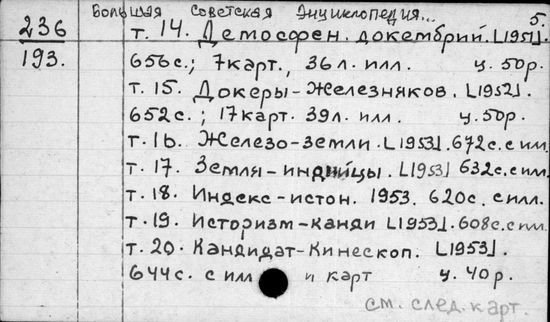 Большая Советская Энциклопедия... 5.
236 т. 14. Демосфен. докембрий. [1951].
193. 656с.; 7карт., 36л. илл. ц. 50р.
т. 15. Докеры-Железняков. [1952].
652с.; 17карт. 39л. илл. ц. 50р.
т. 16. Железо-земли. [1953]. 672с. с илл.
т. 17. Земля-индейцы. [1953] 632с. с илл.
т. 18. Индекс-истон. 1953. 620с. с илл.
т. 19. Историзм-канди [1953]. 608с. с илл.
т. 20. Кандидат-Кинескоп. [1953].
644с. с илл и карт ц. 40р.
см. след. карт.